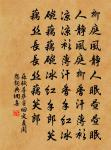 柳庭風靜人眠晝晝眠
人靜風庭柳香汗薄衫
涼涼衫薄汗香手紅冰
碗藕藕碗冰紅手郎笑
藕絲長長絲藕笑郎
蘇軾菩薩蠻回文夏閨
怨